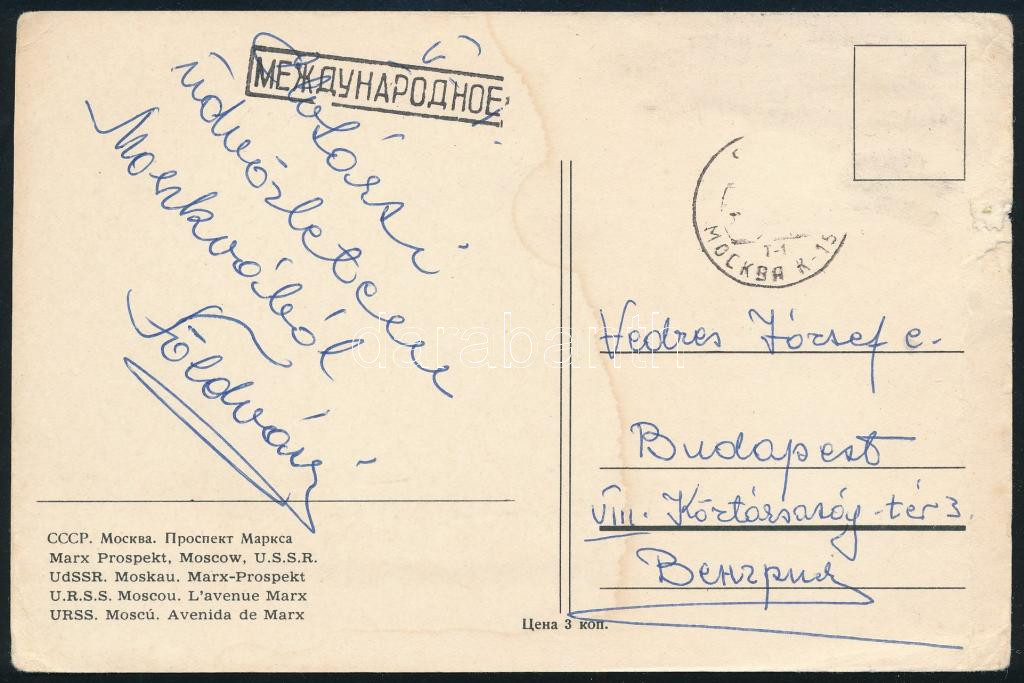 МЕЖДУНАРОДНОЕ
üdvözletem
Moszkvából
Földvári
МОСКВА К-15
Т-1
Vedres József e.
Budapest
VIII. Köztársaság-tér 3.
Венгрия
СССР. Москва. Проспект Маркса
Marx Prospekt, Moscow, U.S.S.R.
UdSSR. Moskau. Marx-Prospekt
U.R.S.S. Moscou. L'avenue Marx
URSS. Moscú. Avenida de Marx
Цена 3 коп.
darabanth